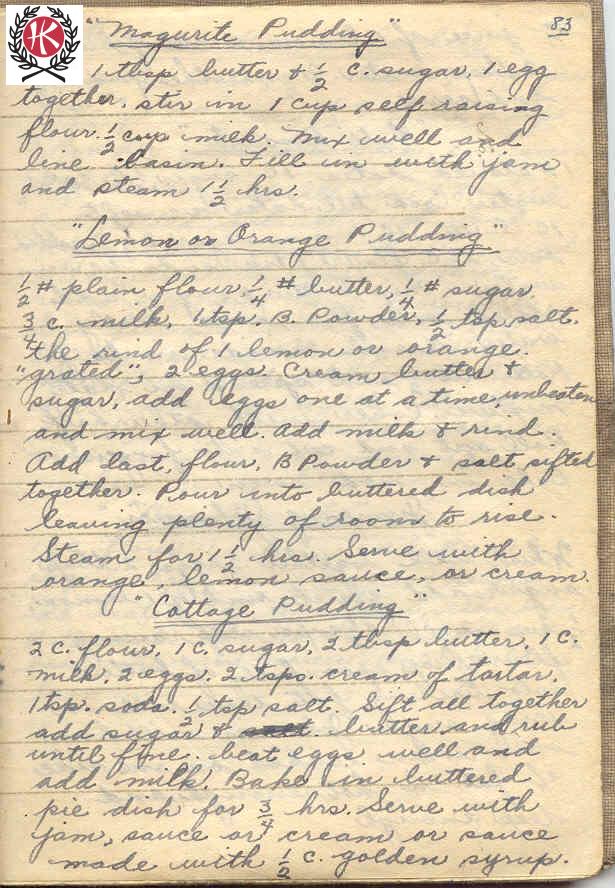 HK
83
"Magurite Pudding"
1 tbsp butter & 1/2 c. sugar, 1 egg
together. stir in 1 cup self raising
flour. 1/2 cup milk. Mix well and
line basin. Fill in with jam
and steam 1 1/2 hrs.
"Lemon or Orange Pudding"
1/2 # plain flour, 1/4 # butter, 1/4 # sugar
3/4 c. milk, 1 tsp. B. Powder, 1/2 tsp salt.
the rind of 1 lemon or orange.
"grated", 2 eggs. Cream butter &
sugar, add eggs one at a time, unbeaten
and mix well. Add milk & rind.
Add last, flour, B Powder & salt sifted
together. Pour into buttered dish
leaving plenty of room to rise.
Steam for 1 1/2 hrs. Serve with
orange, lemon sauce, or cream.
"Cottage Pudding"
2 c. flour, 1 c. sugar, 2 tbsp butter, 1 c.
milk, 2 eggs. 2 tsps. cream of tartar.
1 tsp. soda. 1/2 tsp salt. Sift all together
add sugar & butter and rub
until fine. beat eggs well and
add milk. Bake in buttered
pie dish for 3/4 hrs. Serve with
jam, sauce or cream or sauce
made with 1/2 c. golden syrup.